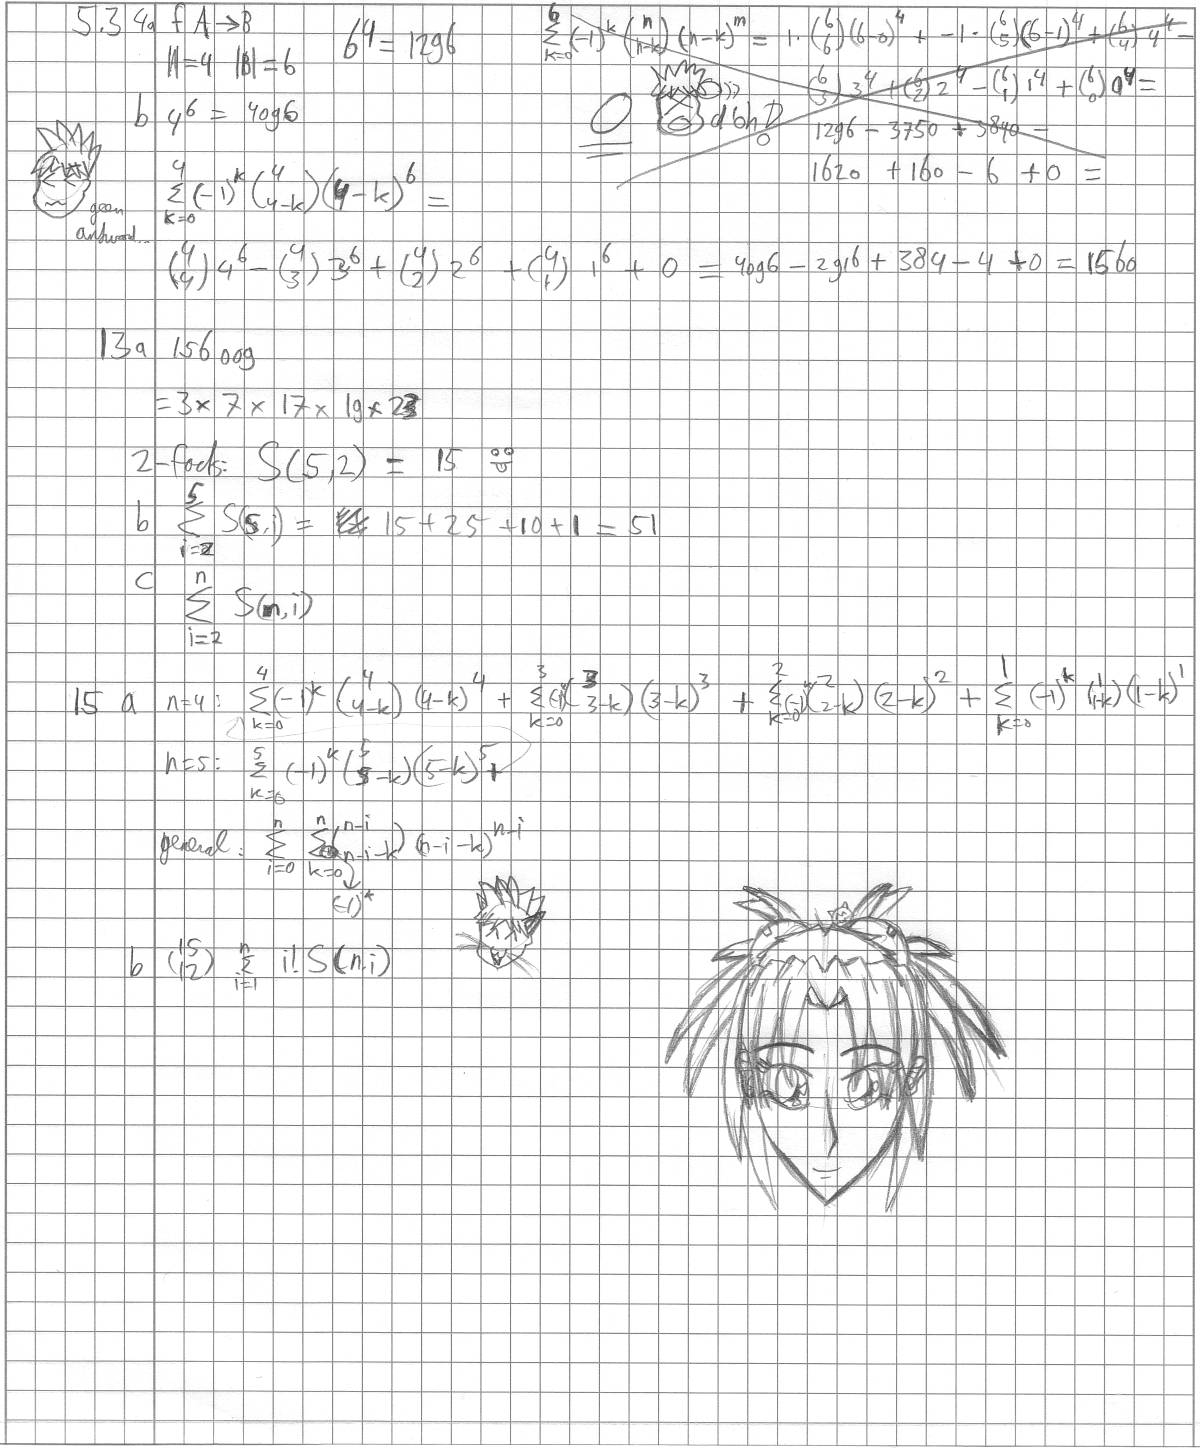 5.3 4a f A → B 6^4 = 1296
|A| = 4 |B| = 6
\sum_{k=0}^{6} (-1)^k \binom{n}{n-k} (n-k)^m = 1 · \binom{6}{6} (6-0)^4 + -1 · \binom{6}{5} (6-1)^4 + \binom{6}{4} 4^4 -
\binom{6}{3} 3^4 + \binom{6}{2} 2^4 - \binom{6}{1} 1^4 + \binom{6}{0} 0^4 =
1296 - 3750 + 3840 -
1620 + 160 - 6 + 0 =
0
b 4^6 = 4096
geen
antwoord...
\sum_{k=0}^{4} (-1)^k \binom{4}{4-k} (4-k)^6 =
\binom{4}{4} 4^6 - \binom{4}{3} 3^6 + \binom{4}{2} 2^6 + \binom{4}{1} 1^6 + 0 = 4096 - 2916 + 384 - 4 + 0 = 1560
13a 156009
= 3 × 7 × 17 × 19 × 23
2-facts: S(5,2) = 15
b \sum_{i=2}^{5} S(5,i) = 15 + 25 + 10 + 1 = 51
c \sum_{i=2}^{n} S(n,i)
15 a n=4: \sum_{k=0}^{4} (-1)^k \binom{4}{4-k} (4-k)^4 + \sum_{k=0}^{3} (-1)^k \binom{3}{3-k} (3-k)^3 + \sum_{k=0}^{2} (-1)^k \binom{2}{2-k} (2-k)^2 + \sum_{k=0}^{1} (-1)^k \binom{1}{1-k} (1-k)^1
n=5: \sum_{k=0}^{5} (-1)^k \binom{5}{5-k} (5-k)^5 +
general: \sum_{i=0}^{n} \sum_{k=0}^{n} \binom{n-i}{n-i-k} (n-i-k)^{n-i}
(-1)^k
b \binom{15}{12} \sum_{i=1}^{n} i! S(n,i)